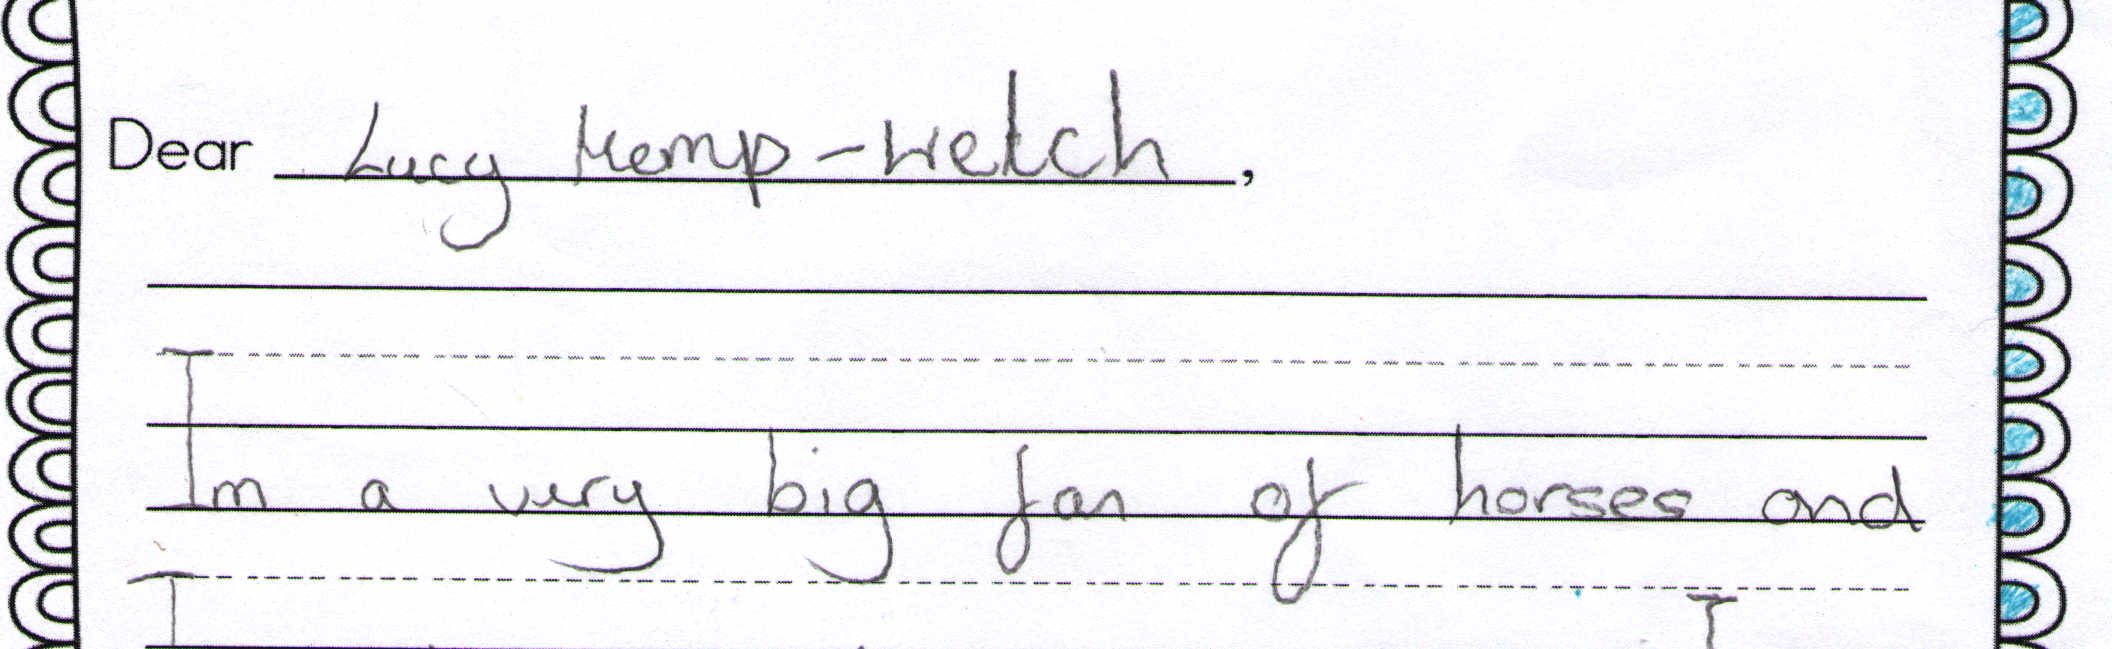 Dear Lucy Kemp-Welch,
Im a very big fan of horses and
I I